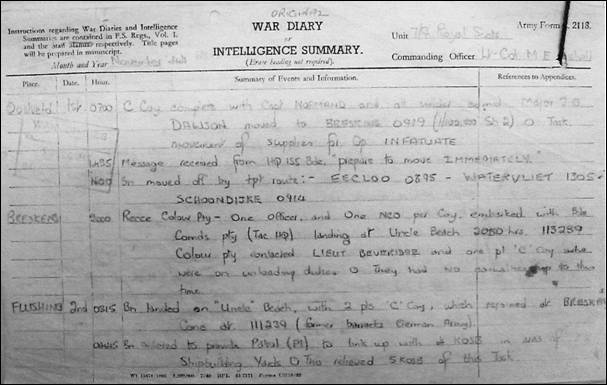 ORIGINAL
Instructions regarding War Diaries and Intelligence
Summaries are contained in F.S. Regs., Vol. I.
and the Staff Manual respectively. Title pages
will be prepared in manuscript.
Month and Year November
WAR DIARY
or
INTELLIGENCE SUMMARY.
(Erase heading not required).
Army Form C. 2118.
Unit Royal Scots
Commanding Officer Lt-Col. M E
Place. Date. Hour. Summary of Events and Information. References to Appendices.
1st 0700 C Coy complete with Capt NORMAND and at under Major J.D.
DAWSON moved to BRESKENS 0919 Sh 2) O Task
movement of supplies for Op INFATUATE
Message received from HQ 155 Bde, "prepare to move IMMEDIATELY."
Bn moved off by tpt route:- EECLOO 0895 - WATERVLIET 1305 -
SCHOONDIJKE 0914
BRESKENS 2000 Recce Colour Pty - One Officer, and One NCO per Coy, embarked with Bde
Comds pty (Tac HQ) landing at Uncle Beach hrs. 113289
Colour pty contacted LIEUT BEVERIDGE and one pl 'C' Coy
were on unloading duties O They had no up to this
time.
FLUSHING 2nd 0315 Bn landed on "Uncle" Beach, with 2 pls 'C' Coy, which remained at BRESKENS
Conc at 111239 (former barracks German Army)
Bn ordered to provide Patrol to link up with 4 KOSB in area of
Shipbuilding Yards O relieved 5 KOSB of this Task.